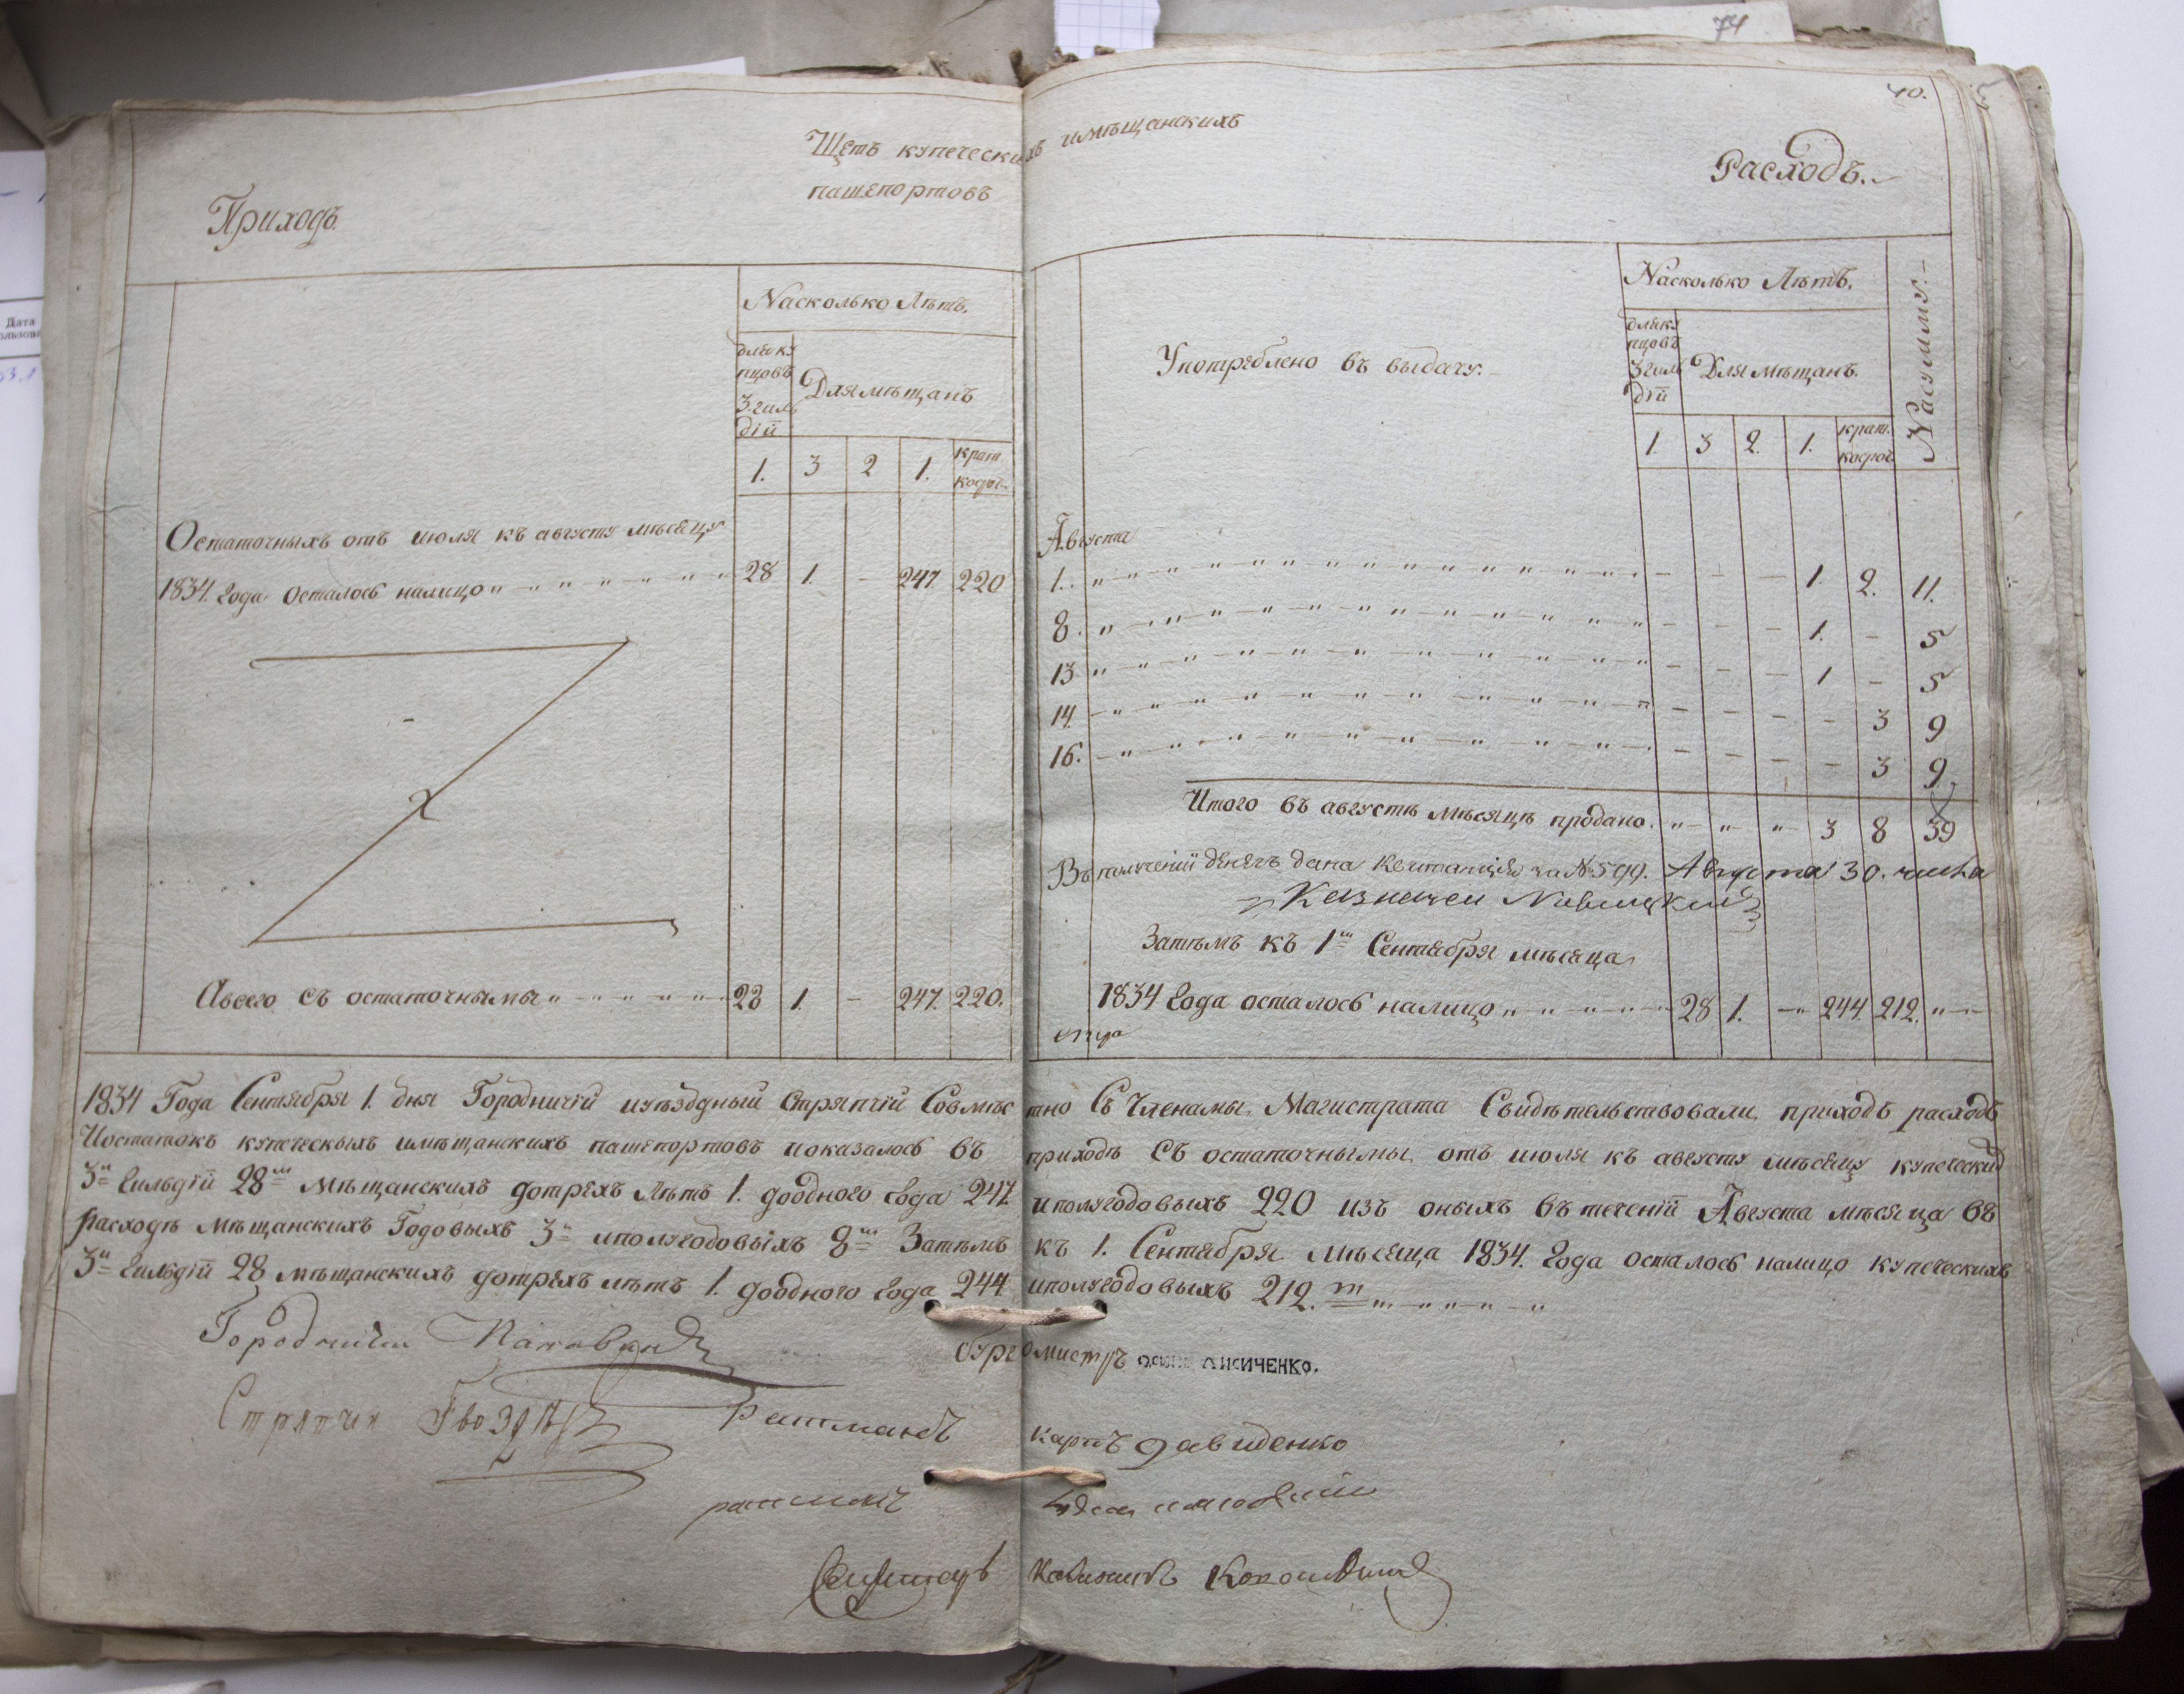 74
40.
Щетъ купеческихъ имѣщанскихъ
пашепортовъ
Приходъ.
Насколько Лѣтъ.
дляку
пцовъ
3. гиль
дій
Для мѣщанъ
1. 3 2 1. крат
косроч.
Остаточныхъ отъ июля къ августу мѣсяцу
1834. Года осталось налицо 28 1. - 247. 220
Авсего съ остаточнымы 28 1. - 247. 220.
Расходъ.
Употреблено въ выдачу.
Насколько Лѣтъ.
Насумму.
длякy
пцовъ
3 гиль
дій
Для мѣщанъ.
1. 3 2. 1. крат.
косроч.
Августа
1. - - - 1. 2. 11.
8. - - - 1. - 5
13 - - - 1 - 5
14. - - - - 3 9
16. - - - - 3 9
Итого въ августѣ мѣсяцѣ продано. 3 8 39
Въ получении денегъ дана квитанция за № 599. Августа 30. числа
Казначеи
Затѣмъ къ 1ᵐ Сентября мѣсяца
1834 Года осталось налицо 28 1. - 244. 212.
1834 Года Сентября 1. дня Городничій иуѣздный Стряпчій Совмѣстно Съ Членамы Магистрата Свидѣтельствовали приходъ расходъ
Иостатокъ купеческыхъ имѣщанскихъ пашепортовъ иоказалось въ приходѣ Съ остаточнымы отъ июля къ августу мѣсяцу купеческий
3й Гильдіи 28ᵐ мѣщанскихъ дотрехъ Лѣтъ 1. доодного Года 247. иполугодовыхъ 220 изъ оныхъ въ теченіи Августа мѣсяца въ
расходѣ мѣщанскихъ Годовыхъ 3 иполугодовыхъ 8ᵐ Затѣмъ къ 1. Сентября мѣсяца 1834. Года осталось налицо купеческихъ
3й Гильдіи 28 мѣщанскихъ дотрехъ лѣтъ 1. доодного Года 244 иполугодовыхъ 212.
Городничій
бургомистръ ОСИПЪ ЛИСИЧЕНКО.
Стряпчи
Ратманъ Карпъ Давиденко
ратманъ